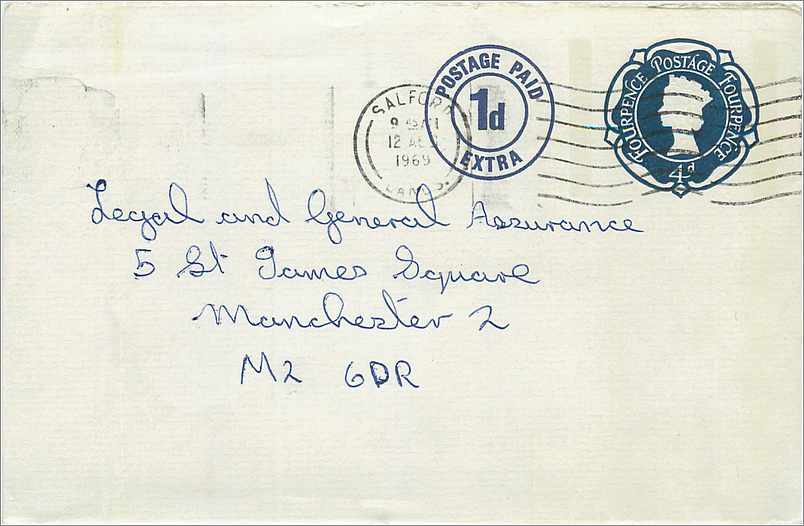 POSTAGE PAID
1d
EXTRA
FOURPENCE POSTAGE FOURPENCE
4d
SALFORD
12
1969
Legal and General Assurance
5 St James Square
Manchester 2
M2 6DR